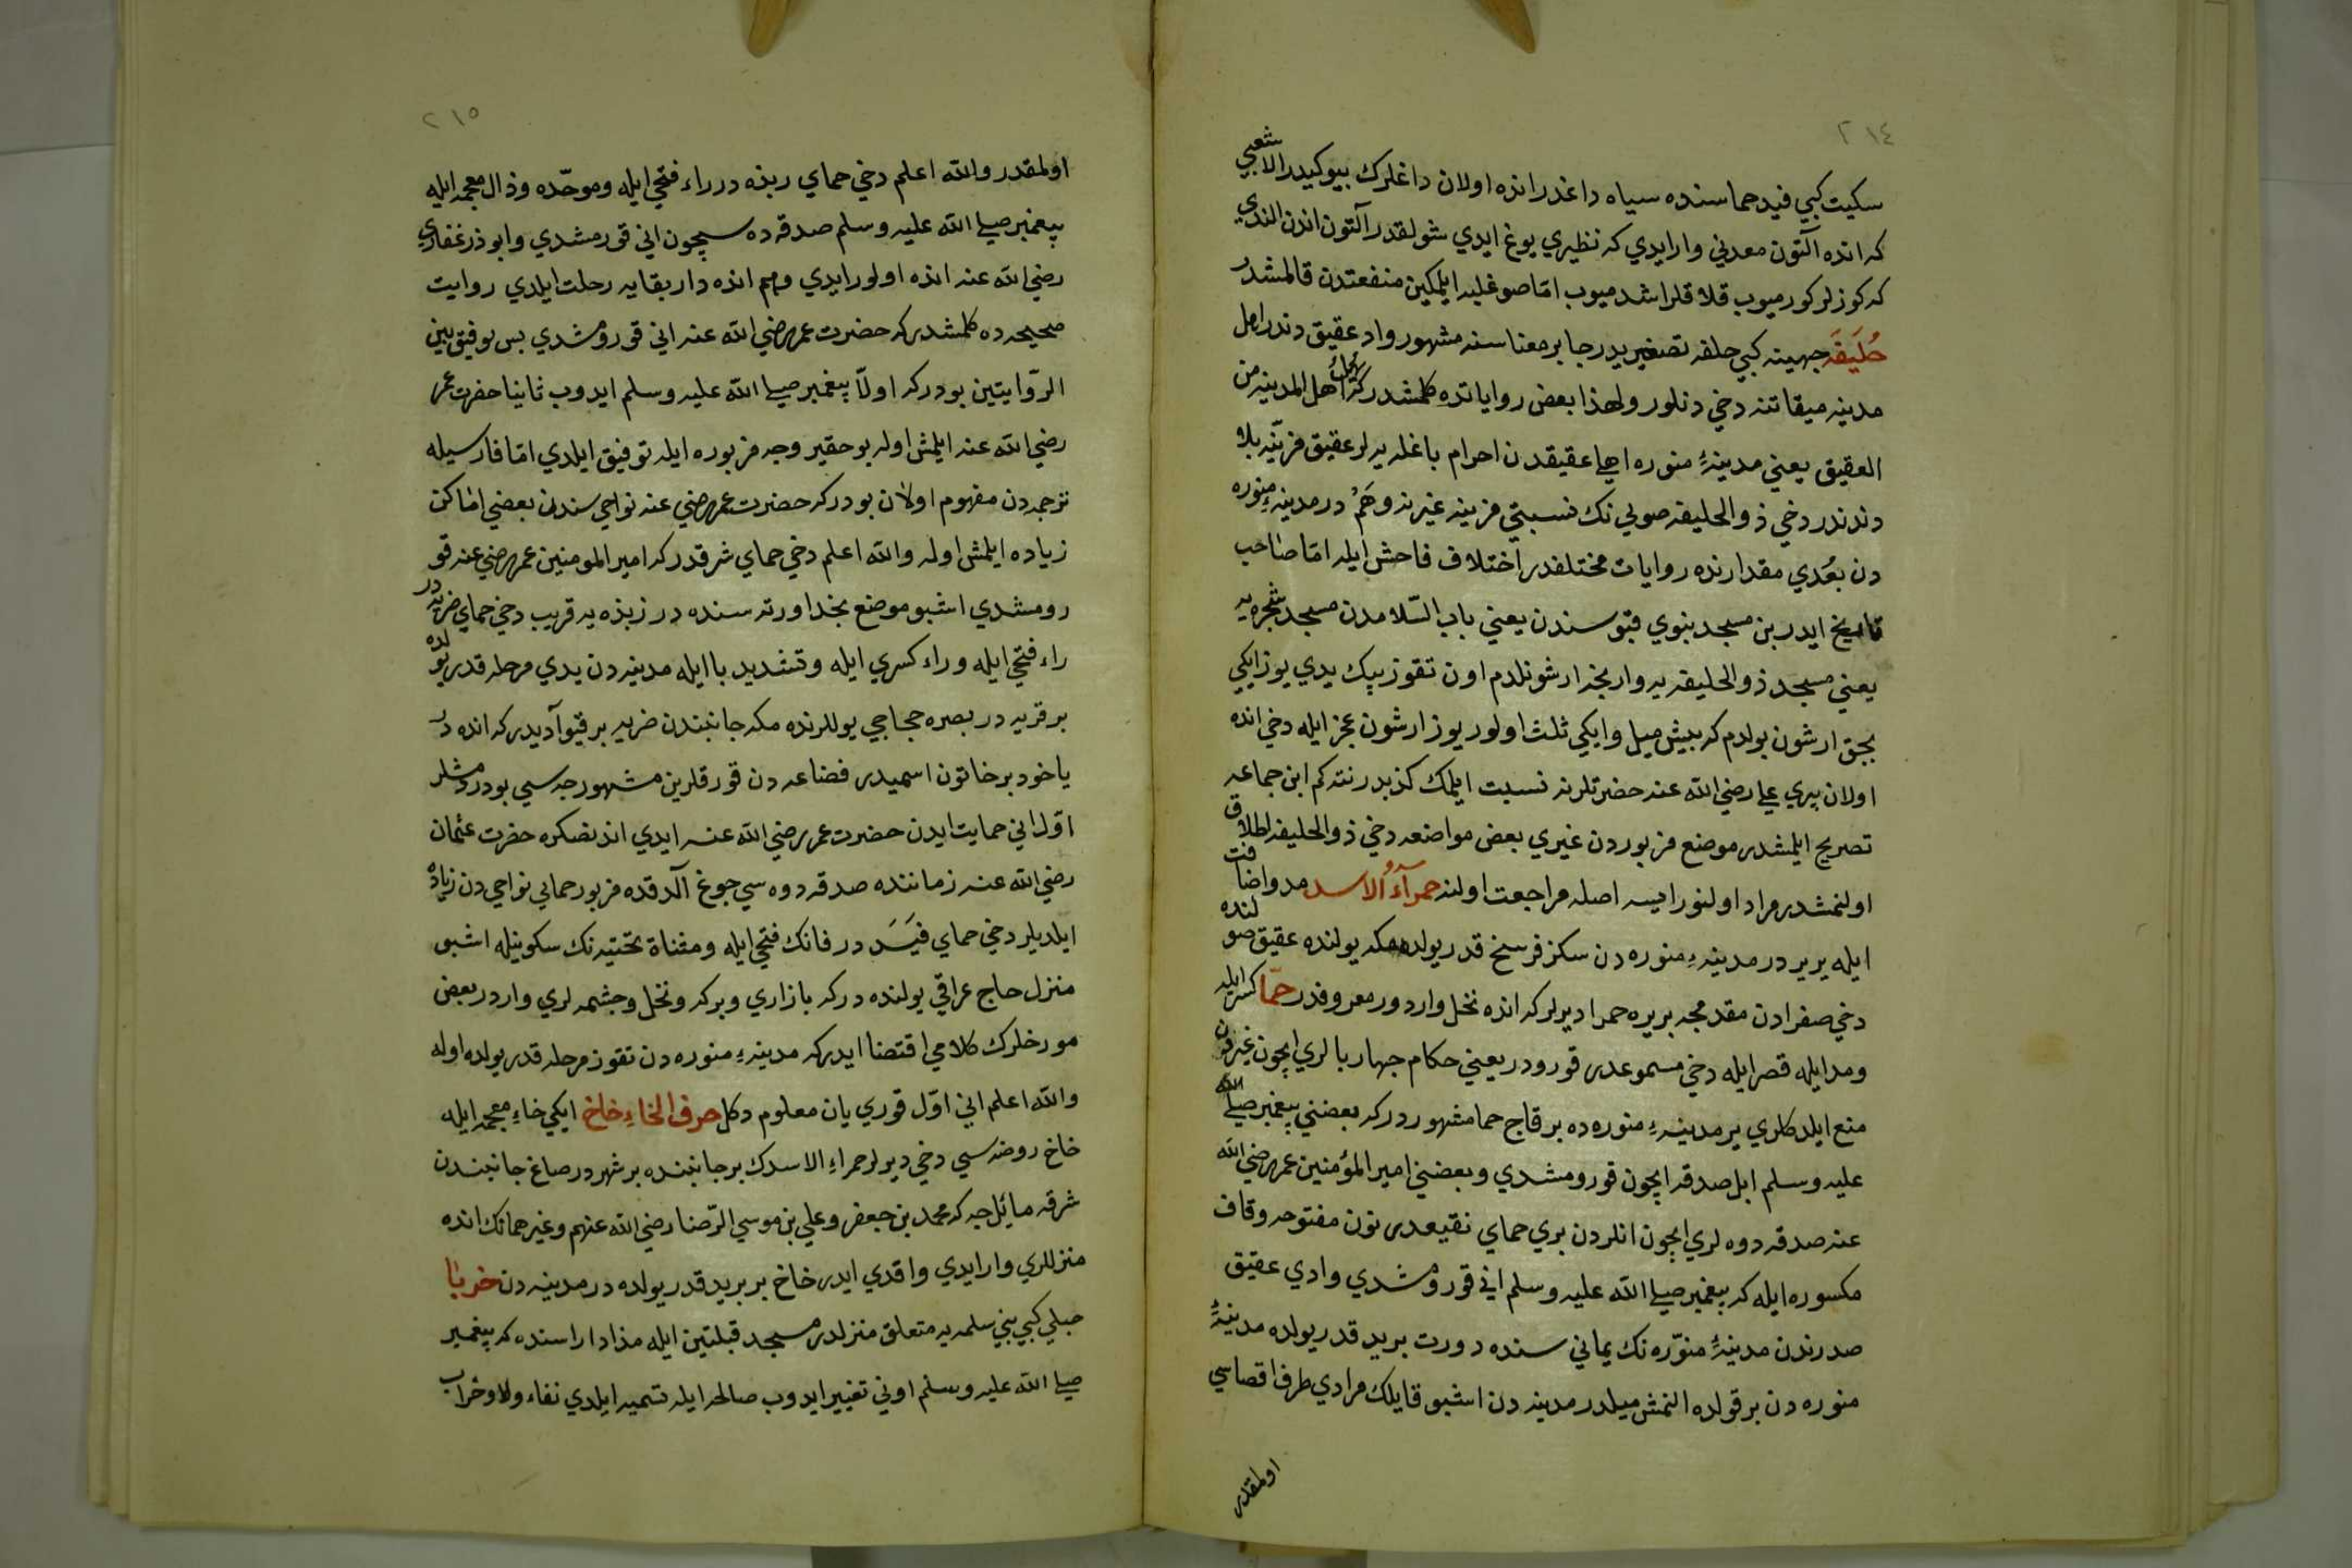 ٢١٤
سكيت كبي فيد حماسنده سياه داغدر انده اولان داغلرك بيوكيدر الاشعبي
كه انده آلتون معدني وار ايدي كه نظيري يوغ ايدي شولقدر آلتون اندن الندي
كه كوزلر كورميوب قلاقلر اشدميوب اما صو غلبه ايلمكين منفعتدن قالمشدر
حُلَيفَه جهينه كبي حلفه تصغيريدر جابر معناسنه مشهور واد عقيق دندر اهل
مدينه ميقاتنه دخي دنلور ولهذا بعض رواياتده كلمشدركه يُهلّ اهل المدينه من
العقيق يعني مدينهٔ منوره اهلي عقيقدن احرام باغله يه لر عقيق مزينه بلاد
دندندر دخي ذو الحليفه صويي نك نسبتي مزينه غيرنه وهَمْ در مدينهٔ منوره
دن بعُدي مقدارنده روايات مختلفدر اختلاف فاحش ايله اما صاحب
تاريخ ايدر بن مسجد نبوي قبوسندن يعني باب السّلامدن مسجد شجره يه
يعني مسجد ذو الحليفه يه وارنجه ارشونلدم اون تقوز بيك يدي يوز ايكي
بجق ارشون بولدم كه بيش ميل وايكي ثلث اولور يوز ارشون عجز ايله دخي انده
اولان بيري علي رضي الله عنه حضرتلرنه نسبت ايلمك كذبدر نته كم ابن جماعه
تصريح ايلمشدر موضع مزبوردن غيري بعض مواضعه دخي ذو الحليفه اطلاق
اولنمشدر مراد اولنور ايسه اصله مراجعت اولنه حمرآءُ الاسد مد واضافت
ايله بر يردر مدينهٔ منوره دن سكز فرسخ قدر يولده مكه يولنده عقيق صولنده
دخي صفرادن مقدمجه بر يره حمرا ديرلر كه انده نخل واردور معروفدر حمّا كسر ايله
ومد ايله قصر ايله دخي مسموعدر قورودر يعني حكام جهار بالري ايچون غيردن
منع ايلدكلري ير مدينهٔ منوره ده بر قاج حما مشهوردر كه بعضني پيغمبر صلى الله
عليه وسلم ابل صدقه ايچون قورومشدي وبعضيني امير المؤمنين عمر رضي الله
عنه صدقه دوه لري ايچون انلردن بري حماي نقيعدر نون مفتوحه وقاف
مكسوره ايله كه پيغمبر صلى الله عليه وسلم اني قورومشدي وادي عقيق
صدرندن مدينهٔ منوّره نك يماني سنده دورت بريد قدر يولده مدينهٔ
منوره دن بر قولده النمش ميلدر مدينه دن اشبو قايلك مرادي طرف اقصاسي
اولمقدر
٢١٥
اولمقدر والله اعلم دخي حماي ربذه در راء فتحي ايله وموحّده وذال معجمه ايله
پيغمبر صلى الله عليه وسلم صدقه ده سيچون اني قورمشدي وابو ذر غفاري
رضي الله عنه انده اولور ايدي وهم انده دار بقايه رحلت ايلدي روايت
صحيحه ده كلمشدر كه حضرت عمر رضي الله عنه اني قورومشدي بس توفيق بين
الرّوايتين بودركه اولاً پيغمبر صلى الله عليه وسلم ايدوب ثانيا حضرت عمر
رضي الله عنه ايلمش اوله بو حقير وجه مزبوره ايله توفيق ايلدي اما فارسيله
ترجمه دن مفهوم اولان بودركه حضرت عمر رضي عنه نواحي سندن بعضي اماكن
زياده ايلمش اوله والله اعلم دخي حماي شرفدركه امير المومنين عمر رضي عنه قو
رومشدي اشبو موضع نجد اورته سنده در زبذه يه قريب دخي حماي ضريه در
راء فتحي ايله وراء كسري ايله وتشديد يا ايله مدينه دن يدي مرحله قدر يولده
بر قريه در بصره حجاجي يوللرنده مكه جانبندن ضريه بر قيو آديدر كه انده در
ياخود بر خاتون اسميدر قضاعه دن قورقلرين مشهورجه سي بودر ومشلر
اوّل اني حمايت ايدن حضرت عمر رضي الله عنه ايدي اندنصكره حضرت عثمان
رضي الله عنه زماننده صدقه دوه سي جوغ آلدقده مزبور حمايي نواحي دن زياده
ايلديلر دخي حماي فَيَسَد در فانك فتحي ايله ومثناة تحتيه نك سكونيله اشبو
منزل حاج عراقي يولنده در كه بازاري وبركه ونخل وچشمه لري واردر بعض
مورخلرك كلامي اقتضا ايدركه مدينهٔ منوره دن تقوز مرحله قدر يولده اوله
والله اعلم اني اوّل قوري يان معلوم دكل حرف الخاءِ خاخ ايكي خاءِ معجمه ايله
خاخ روضه سي دخي ديرلر حمراءِ الاسدك بر جانبنده بر شهردر صاغ جانبندن
شرقه مائل جه كه محمد بن جعفر وعلي بن موسي الرّضا رضي الله عنهم وغير همانك انده
منزللري وار ايدي واقدي ايدر خاخ بر بريد قدر يولده در مدينه دن خربا
حبلي كبي بني سلمه يه متعلق منزلدر مسجد قبلتين ايله مذاد اراسنده كه پيغمبر
صلى الله عليه وسلم اوني تغيير ايدوب صالحه ايله تسميه ايلدي نفاءولا وخراب